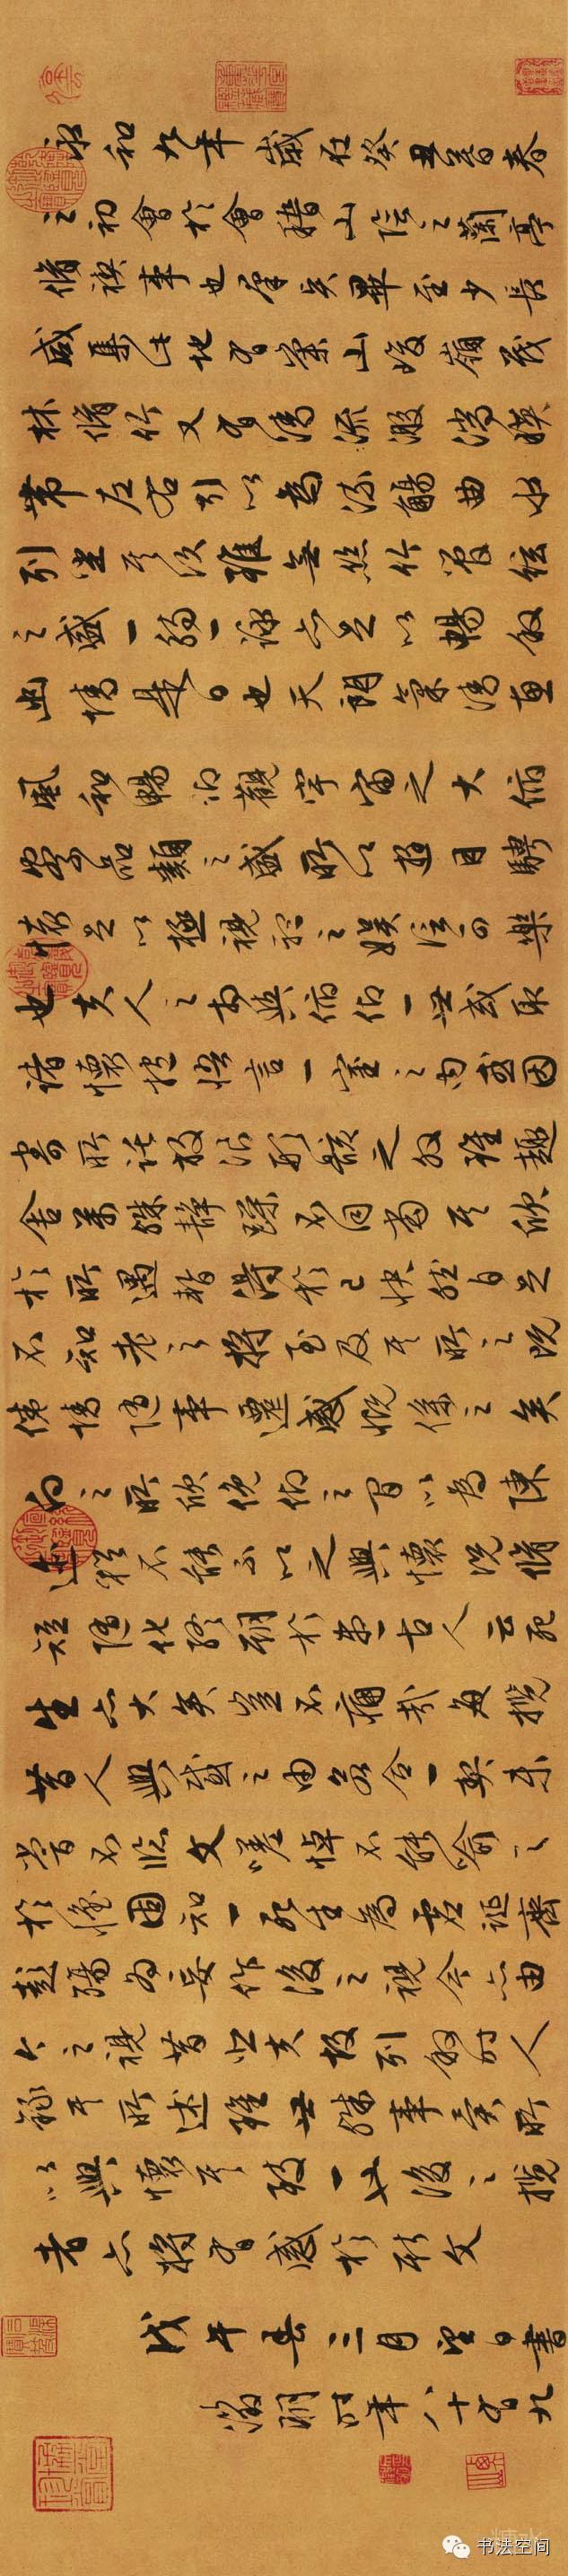 永和九年歲在癸丑暮春
之初會於會稽山陰之蘭亭
脩禊事也群賢畢至少長
咸集此地有崇山峻嶺茂
林脩竹又有清流激湍暎
帶左右引以為流觴曲水
列坐其次雖無絲竹管絃
之盛一觴一詠亦足以暢敘
幽情是日也天朗氣清惠
風和暢仰觀宇宙之大俯
察品類之盛所以遊目騁
懷足以極視聽之娛信可樂
也夫人之相與俯仰一世或取
諸懷抱悟言一室之內或因
寄所託放浪形骸之外雖趣
舍萬殊靜躁不同當其欣
於所遇暫得於己快然自足
不知老之將至及其所之既
倦情隨事遷感慨係之矣
向之所欣俛仰之間以為陳
迹猶不能不以之興懷況脩
短隨化終期於盡古人云死
生亦大矣豈不痛哉每攬
昔人興感之由若合一契未
嘗不臨文嗟悼不能喻之
於懷固知一死生為虛誕齊
彭殤為妄作後之視今亦由
今之視昔悲夫故列敘時人
錄其所述雖世殊事異所
以興懷其致一也後之攬
者亦將有感於斯文
戊午春三月望日書
徵明時年八十有九
书法空间